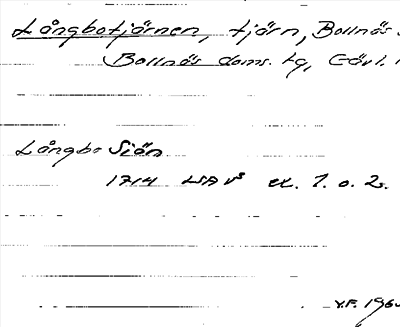 Långbotjärnen, tjärn, Bollnäs
Bollnäs doms. tg, Gävl.
Långbo Siön
1714 LSA v⁵ ex. 1. o. 2.
Y.F. 196